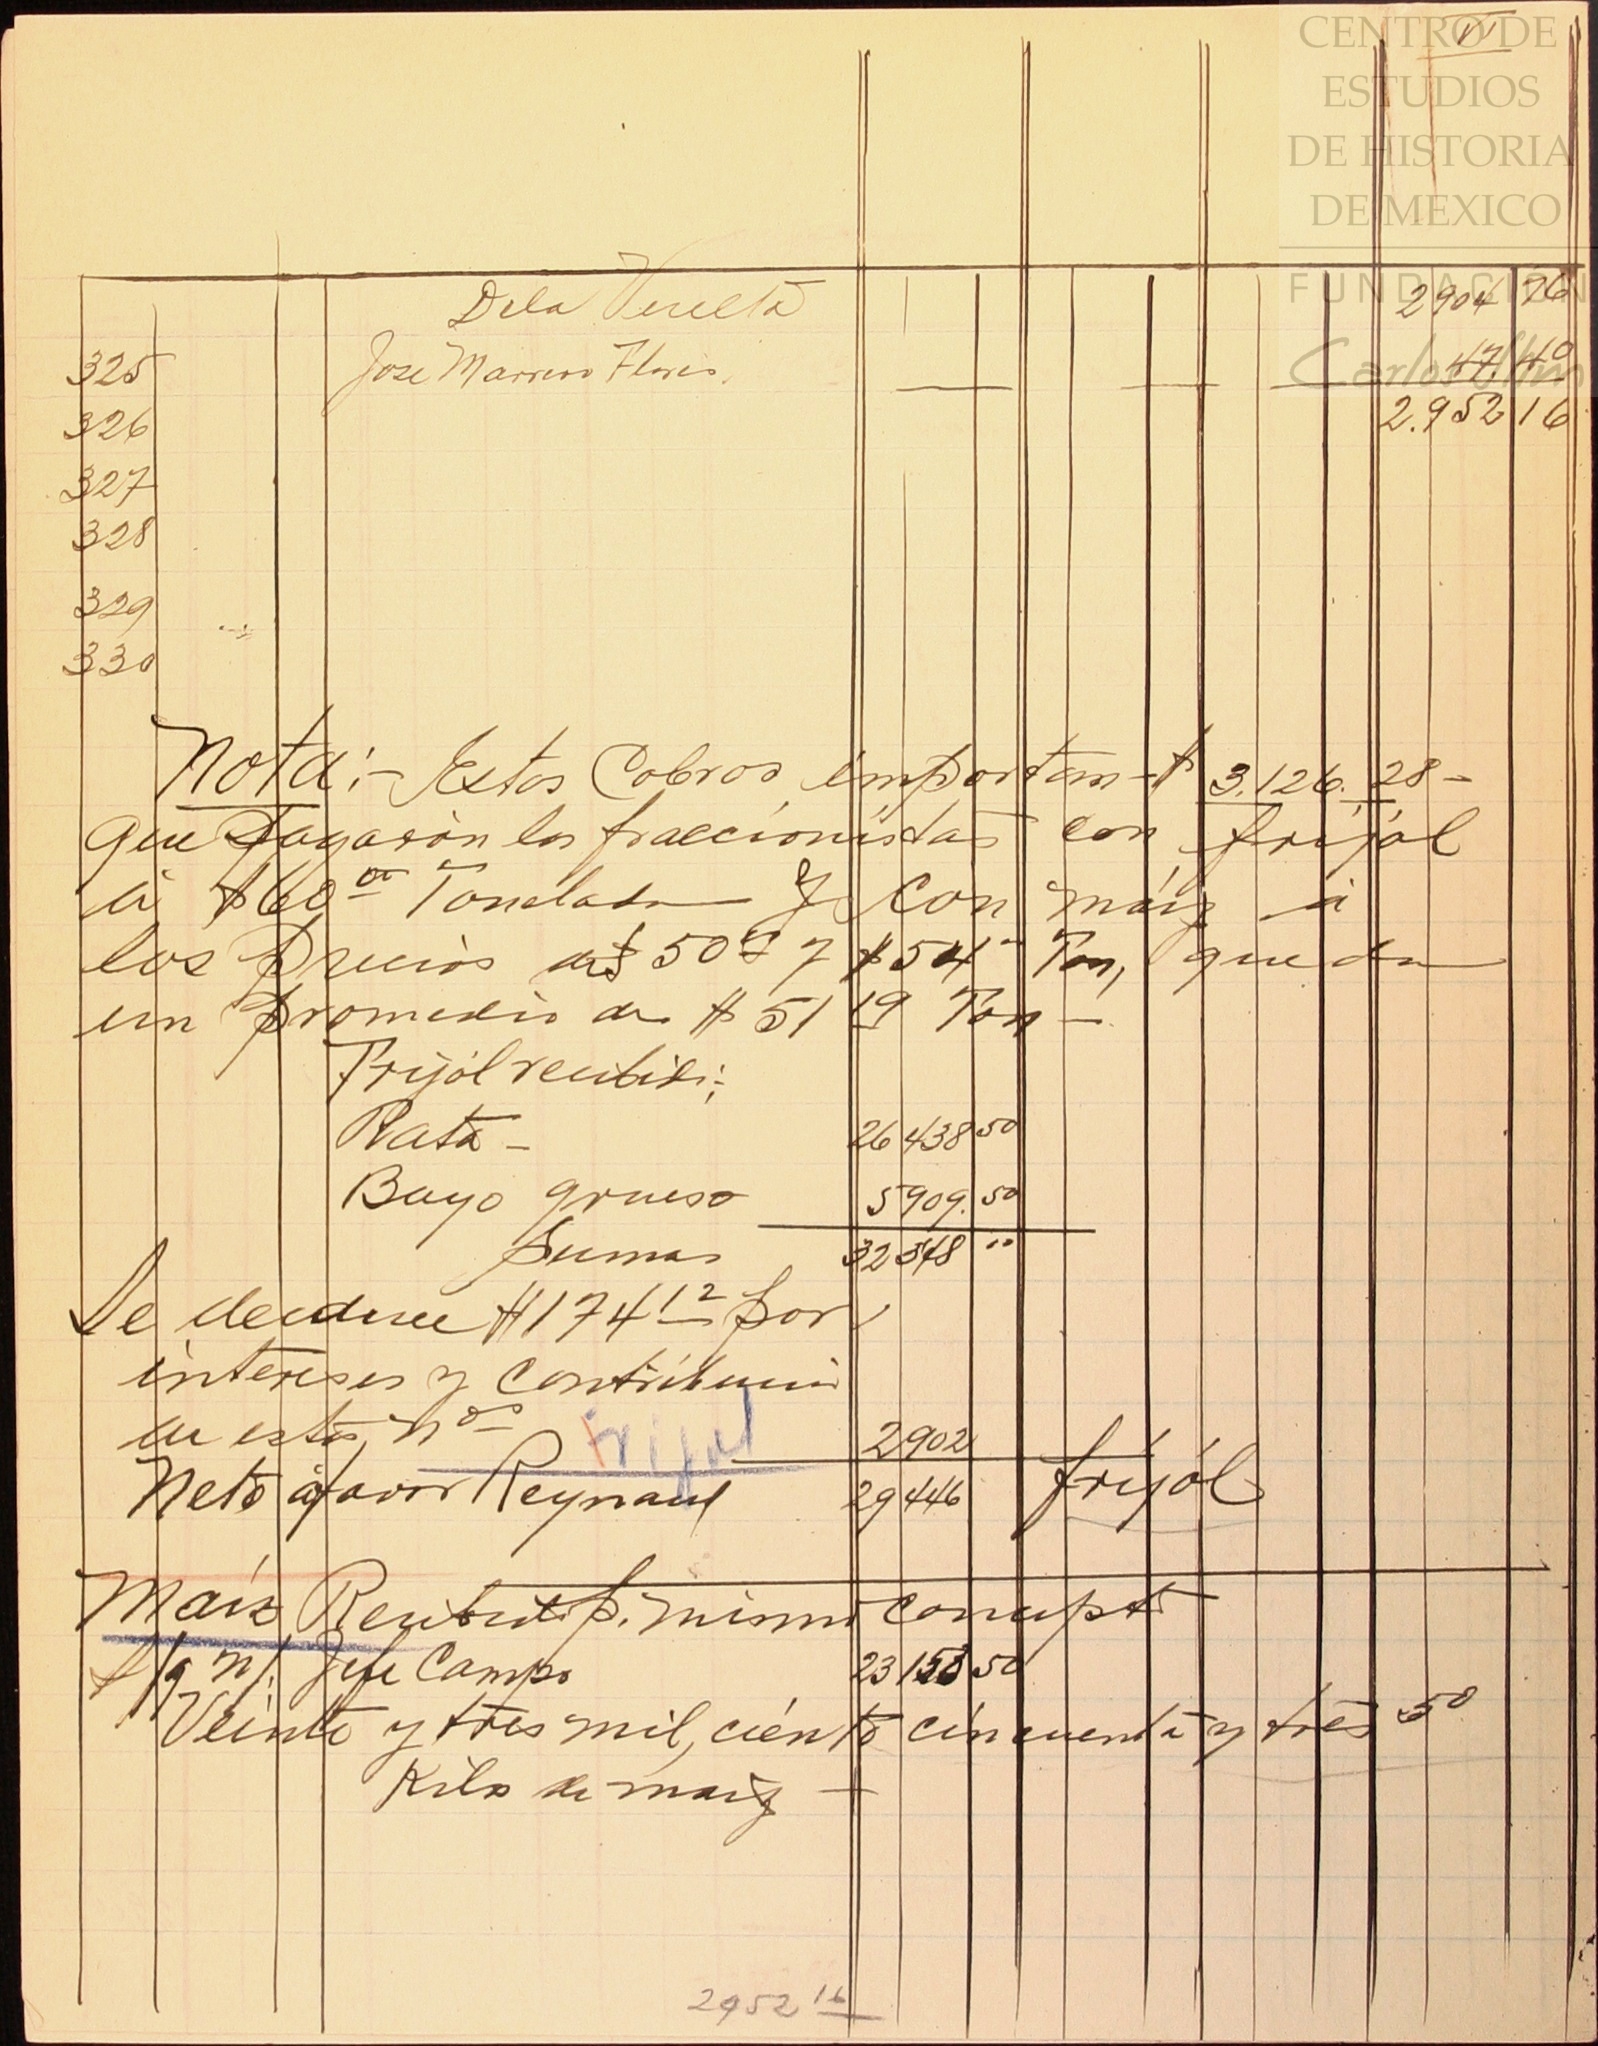 CENTRO DE
ESTUDIOS
DE HISTORIA
DE MEXICO
FUNDACIÓN
Carlos Slim
VI
De la Vuelta 2904 76
325 Jose Marrero Flores. 47.40
326 2.952 16
327
328
329
330
Nota:- Estos Cobros importan - $ 3.126.28 -
que pagaron los fraccionistas con frijól
á $60 00 Tonelada y con maíz á
los precios de $50 y $54 Ton, queda
un promedio de $51 19 Ton -
Frijól recibido:
Rata - 26 438 50
Bayo grueso 5 909. 50
Suman 32 348 00
Se deduce $174 12 por
intereses y contribución
de estos, nos 2902
Frijol
Neto á favor Reynaud 29 446 frijól
Maíz Recibido p. mismo concepto
Jefe Campo 23 153 50
Veinte y tres mil, ciento cincuenta y tres 50
Kilos de maíz -
2952 16